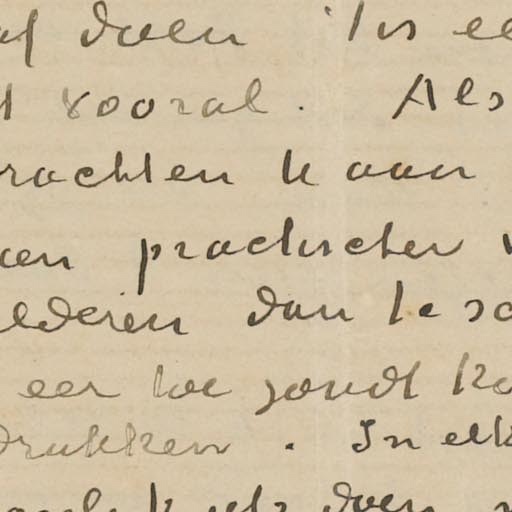 doen 't is ee
vooral. Als
rachten te aan
practischer
elderen dan te sc
eer toe zoudt ko
drukken. In elk
doen